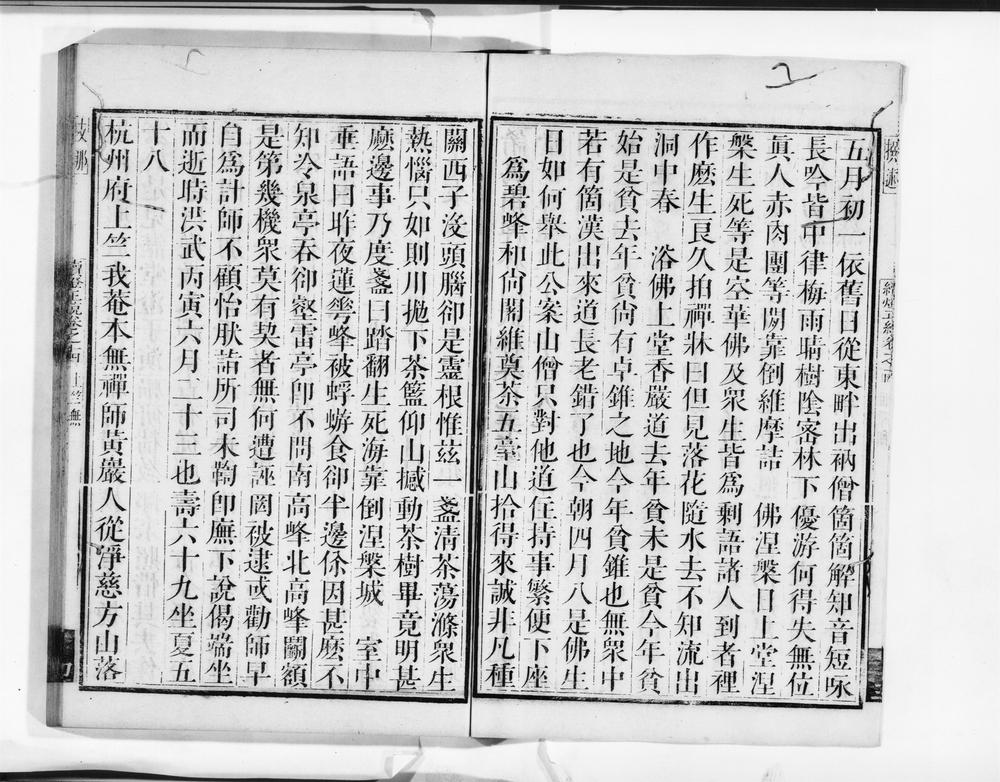 五月初一依舊日從東畔出衲僧箇箇解知音短咏
長吟皆中律梅雨晴樹陰密林下優游何得失無位
眞人赤肉團等閑靠倒維摩詰　佛涅槃日上堂涅
槃生死等是空華佛及衆生皆爲剩語諸人到者裡
作麽生良久拍禪牀曰但見落花隨水去不知流出
洞中春　浴佛上堂香嚴道去年貧未是貧今年貧
始是貧去年貧尙有卓錐之地今年貧錐也無衆中
若有箇漢出來道長老錯了也今朝四月八是佛生
日如何舉此公案山僧只對他道住持事繁便下座
爲碧峰和尙闍維奠茶五臺山拾得來誠非凡種
關西子沒頭腦卻是靈根惟茲一盞清茶蕩滌衆生
熱惱只如則川拋下茶籃仰山撼動茶樹畢竟明甚
麽邊事乃度盞曰踏翻生死海靠倒涅槃城　室中
垂語曰昨夜蓮華峰被蜉蝣食卻半邊你因甚麽不
知冷泉亭吞卻壑雷亭卽不問南高峰北高峰鬭額
是第幾機衆莫有契者無何遭誣罔被逮或勸師早
自爲計師不顧怡肰詣所司未鞫卽廡下說偈端坐
而逝時洪武丙寅六月二十三也壽六十九坐夏五
十八
杭州府上竺我菴本無禪師黃巖人從淨慈方山落